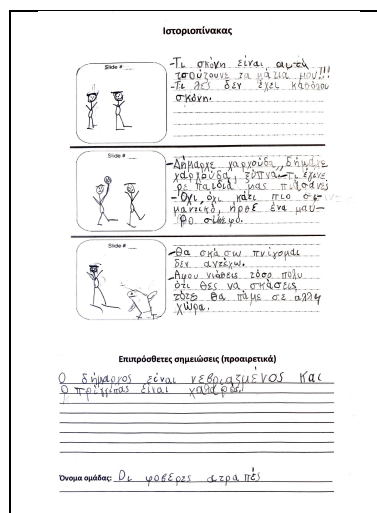 Ιστοριοπίνακας
Slide #
-Τι σκόνη είναι αυτή
τσούζουνε τα μάτια μου!!!
-Τι λες δεν έχει καθόλου
σκόνη.
Slide #
-Δήμαρχε χαρχούδα, δήμαρε
χαρχούδα, ξύπνα-Τι έγινε
ρε παιδιά μας πιάσανε
-Όχι, όχι κάτι πιο ση-
μαντικό, ήρθε ένα μαυ-
ρο σύνεφο.
Slide #
-Θα σκάσω πνίγομαι
δεν αντέχω.
-Αφου νιώθεις τόσο πολυ
ότι θες να σκάσεις
τότε θα πάμε σε αλλη
χώρα.
Επιπρόσθετες σημειώσεις (προαιρετικά)
Ο δήμαρχος είναι νεβριαζμένος και
Ο πρίγγιπας είναι χαλαρός.
Όνομα ομάδας: Οι φοβερες ατραπές